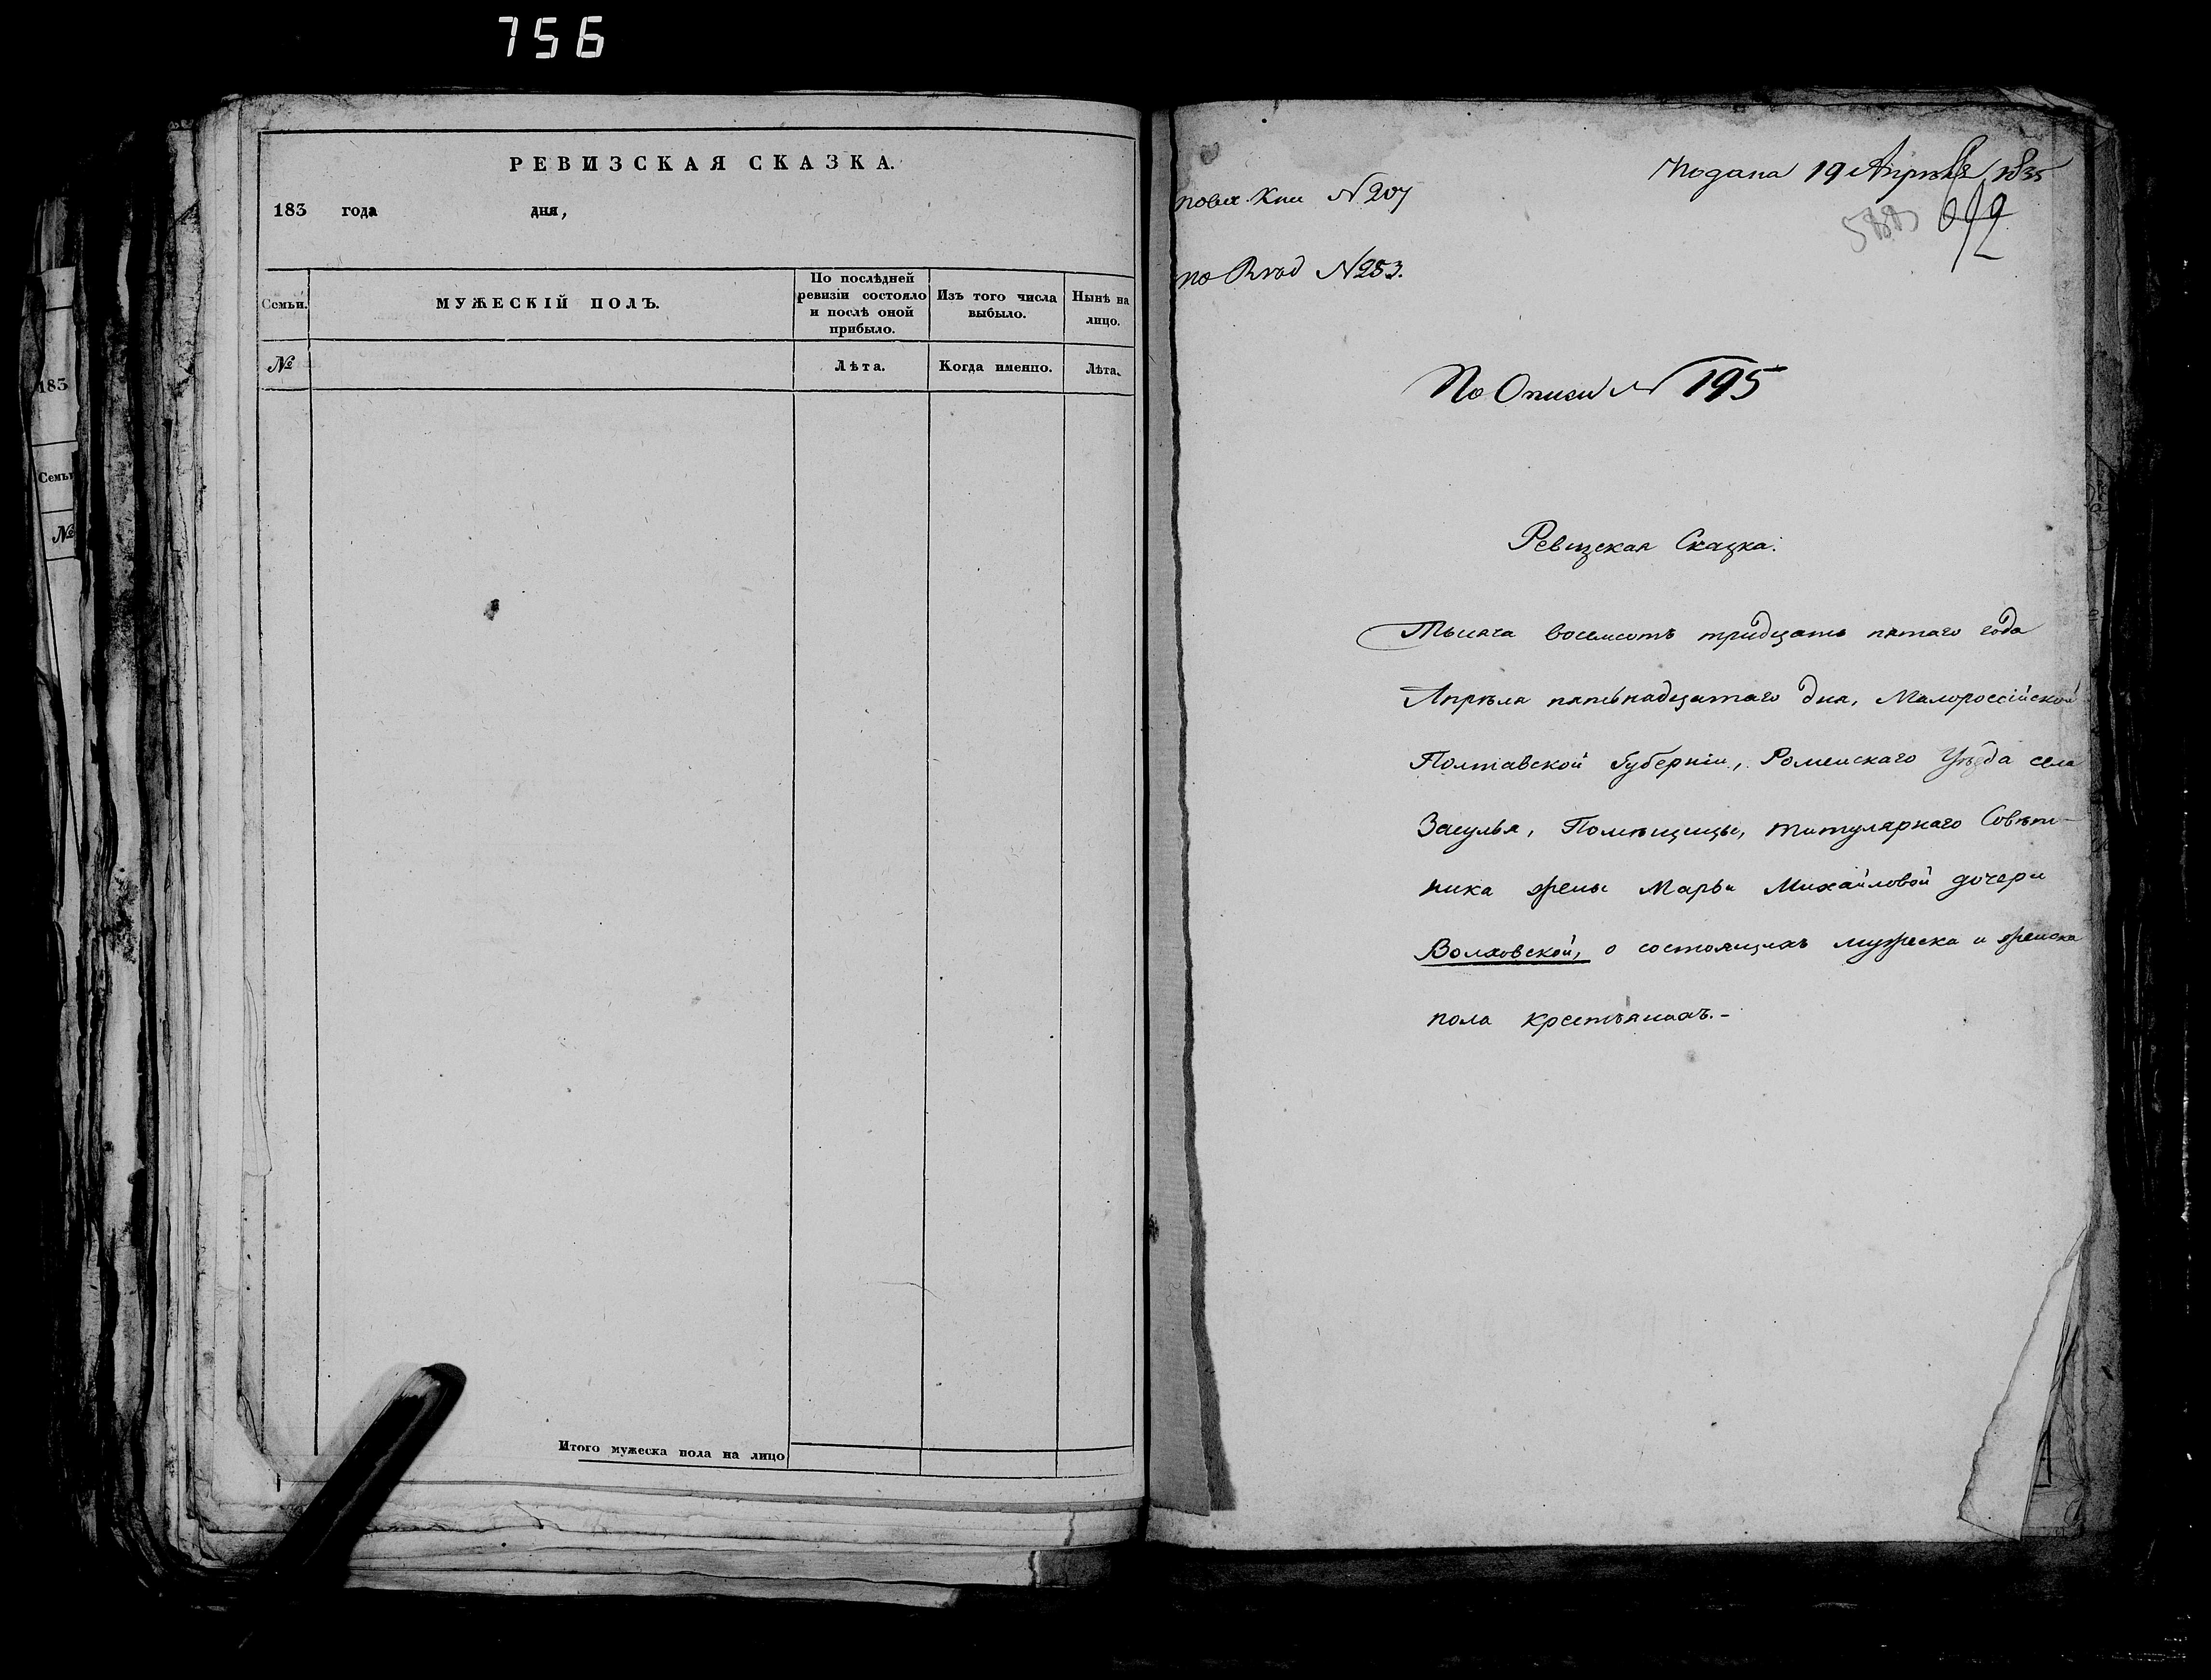 756
РЕВИЗСКАЯ СКАЗКА.
183 года дня,
Семьи.
МУЖЕСКІЙ ПОЛЪ.
По послѣдней
ревизіи состояло
и послѣ оной
прибыло.
Изъ того числа
выбыло.
Нынѣ на
лицо.
№
Лѣта.
Когда именно.
Лѣта.
Итого мужеска пола на лицо
183
Семьи
№
Подана 19 Апрѣля 1835
№ 207
по № 283.
По Описи № 195
Ревизская Сказка.
Тысяча восемсотъ тридцать пятаго года
Апрѣля пятьнадцатаго дня, Малороссійской
Полтавской Губерніи, Роменскаго Уѣзда села
Засулья, Помѣщицы, титулярнаго Совѣт-
ника жены Марьи Михайловой дочери
Волховской, о состоящихъ мужеска и женска
пола крестьянахъ.-